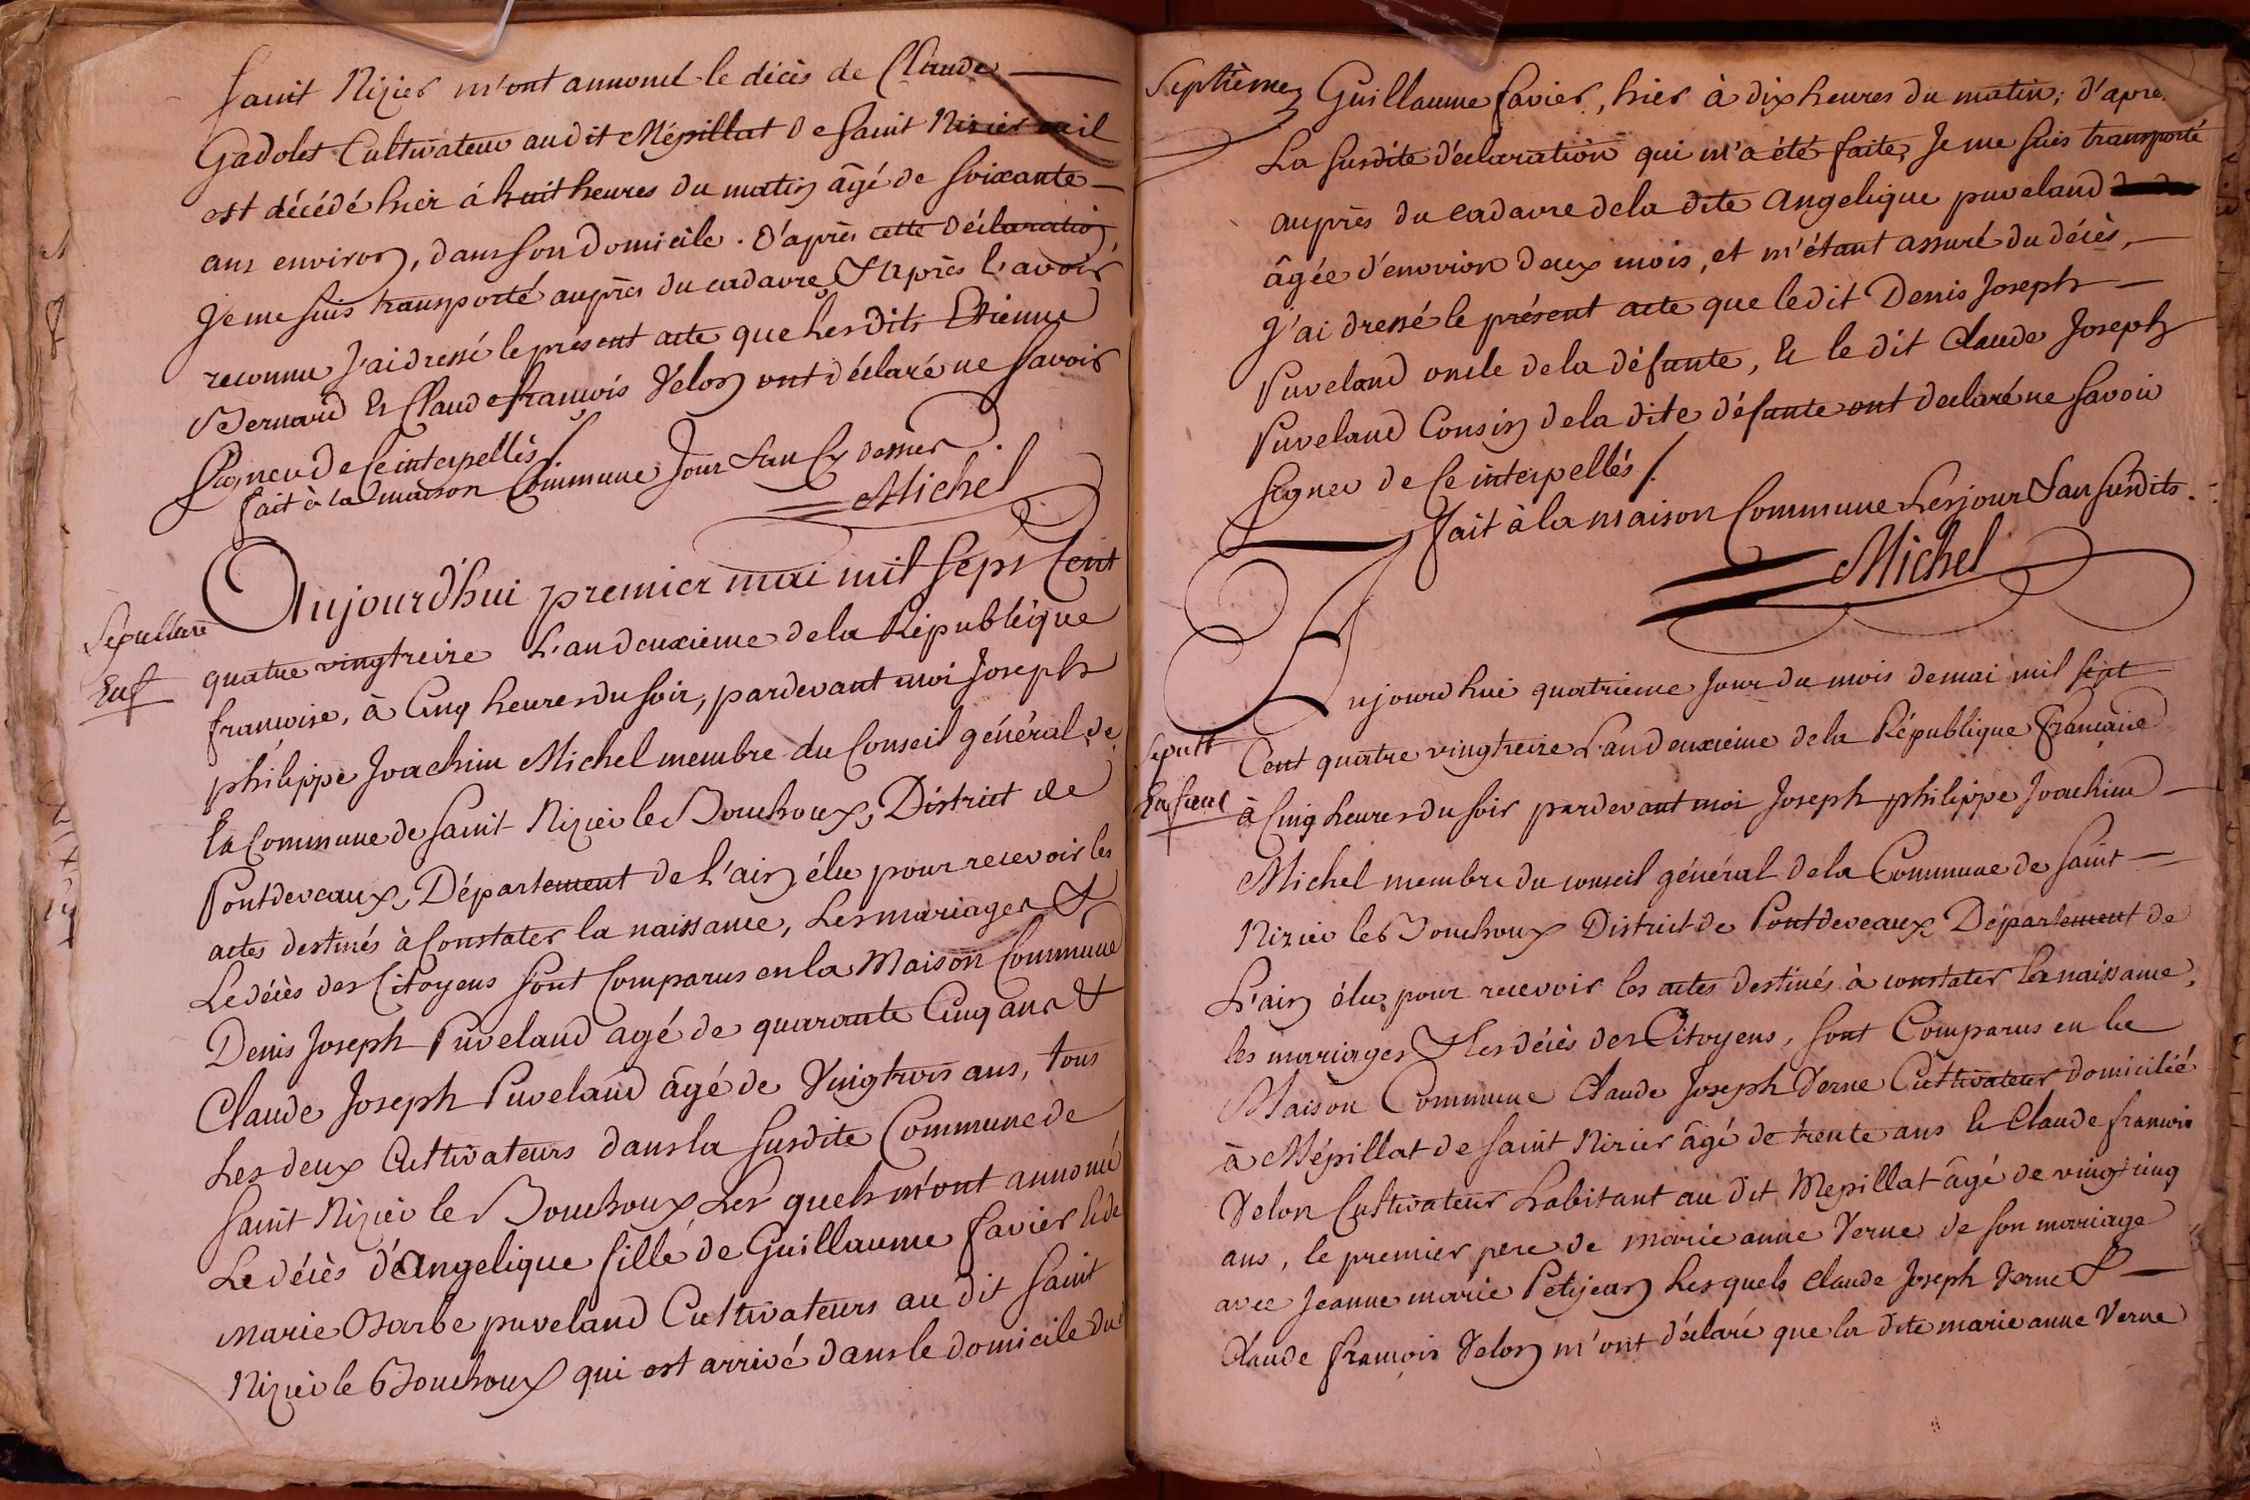 Saint Nizier m'ont annoncé le décès de Claude
Gadolet Cultivateur audit Mépillat de Saint Nizier
est décédé hier à huit heures du matin âgé de soixante
ans environ, dans son domicile. D'après cette déclaration,
Je me suis transporté auprès du cadavre & après l'avoir
reconnu J'ai dressé le présent acte que Les dits Etienne
Bernard & Claude françois Velon ont déclaré ne savoir
Signer de ce interpellés /.
fait à la maison Commune Jour & an Cy dessus.
Michel
Aujourd'hui premier mai mil sept Cent
Sepulture
quatre vingt treize L'an deuxieme de la République
Enf
françoise, à Cinq heures du soir, pardevant moi Joseph
philippe Joachim Michel membre du Conseil général de
la Commune de Saint Nizier le Bouchoux, District de
Pontdevaux, Département de L'ain, élu pour recevoir les
actes destinés à Constater la naissance, Les mariages &
Le décès des Citoyens sont Comparus en la Maison Commune
Denis Joseph Puveland agé de quarante Cinq ans &
Claude Joseph Puveland âgé de Vingt trois ans, tous
Les deux Cultivateurs dans la susdite Commune de
Saint Nizier le Bouchoux Les quels m'ont annoncé
Le décès d'Angelique fille de Guillaume favier & de
Marie Barbe puveland Cultivateurs au dit Saint
Nizier le Bouchoux qui est arrivé dans le domicile du
Septième
Guillaume favier, hier à dix heures du matin; d'après
La susdite déclaration qui m'a été faite, Je me suis transporté
auprès du cadavre de la dite Angelique puveland
âgée d'environ deux mois, et m'étant assuré du décès,
J'ai dressé le présent acte que le dit Denis Joseph
Puveland oncle de la défunte, & le dit Claude Joseph
Puveland Cousin de la dite défunte ont declaré ne savoir
Signer de ce interpellés /.
fait à la maison Commune Les jour & an susdits.
Michel
Aujourd'hui quatrieme Jour du mois de mai mil sept
Sepult
Cent quatre vingt treize L'an deuxième de la République française
Enfant
à Cinq heures du soir pardevant moi Joseph philippe Joachim
Michel membre du conseil général de la Commune de Saint
Nizier le Bouchoux District de Pontdeveaux Département de
L'ain élu, pour recevoir les actes destinés à constater la naissance,
les mariages & les décès des Citoyens, sont Comparus en la
Maison Commune Claude Joseph Verne Cultivateur domicilié
à Mépillat de Saint Nizier âgé de trente ans & Claude françois
Velon Cultivateur habitant au dit Mepillat âgé de vingt cinq
ans, le premier pere de marie anne Verne de son mariage
avec Jeanne marie Petijean Les quels Claude Joseph Verne &
Claude françois Velon m'ont déclaré que la dite marie anne Verne